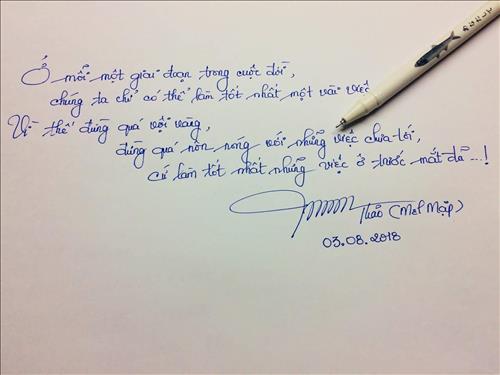 Ở mỗi một giai đoạn trong cuộc đời,
chúng ta chỉ có thể làm tốt nhất một vài việc
Vì thế đừng quá vội vàng,
đừng quá nôn nóng với những việc chưa tới,
cứ làm tốt nhất những việc ở trước mắt đã ...!
Thảo (Mef Mập)
03.08.2018